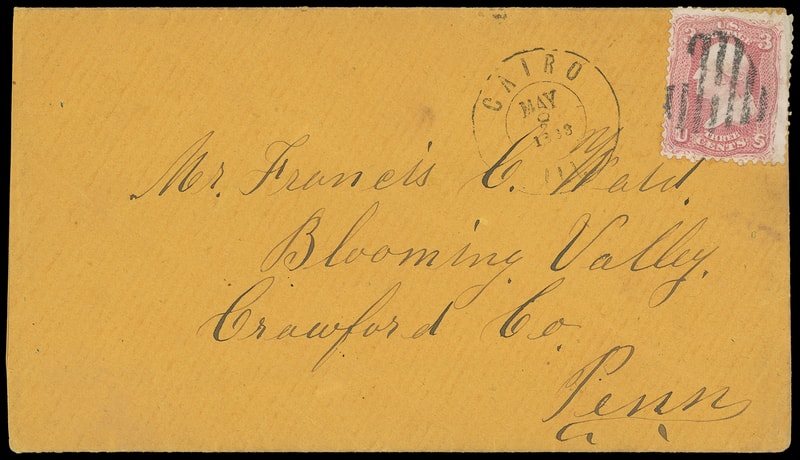 CAIRO
MAY
1863
Ill
U S
POSTAGE
3
3
U THREE S
CENTS
Mr. Francis C. Wald.
Blooming Valley.
Crawford Co.
Penn